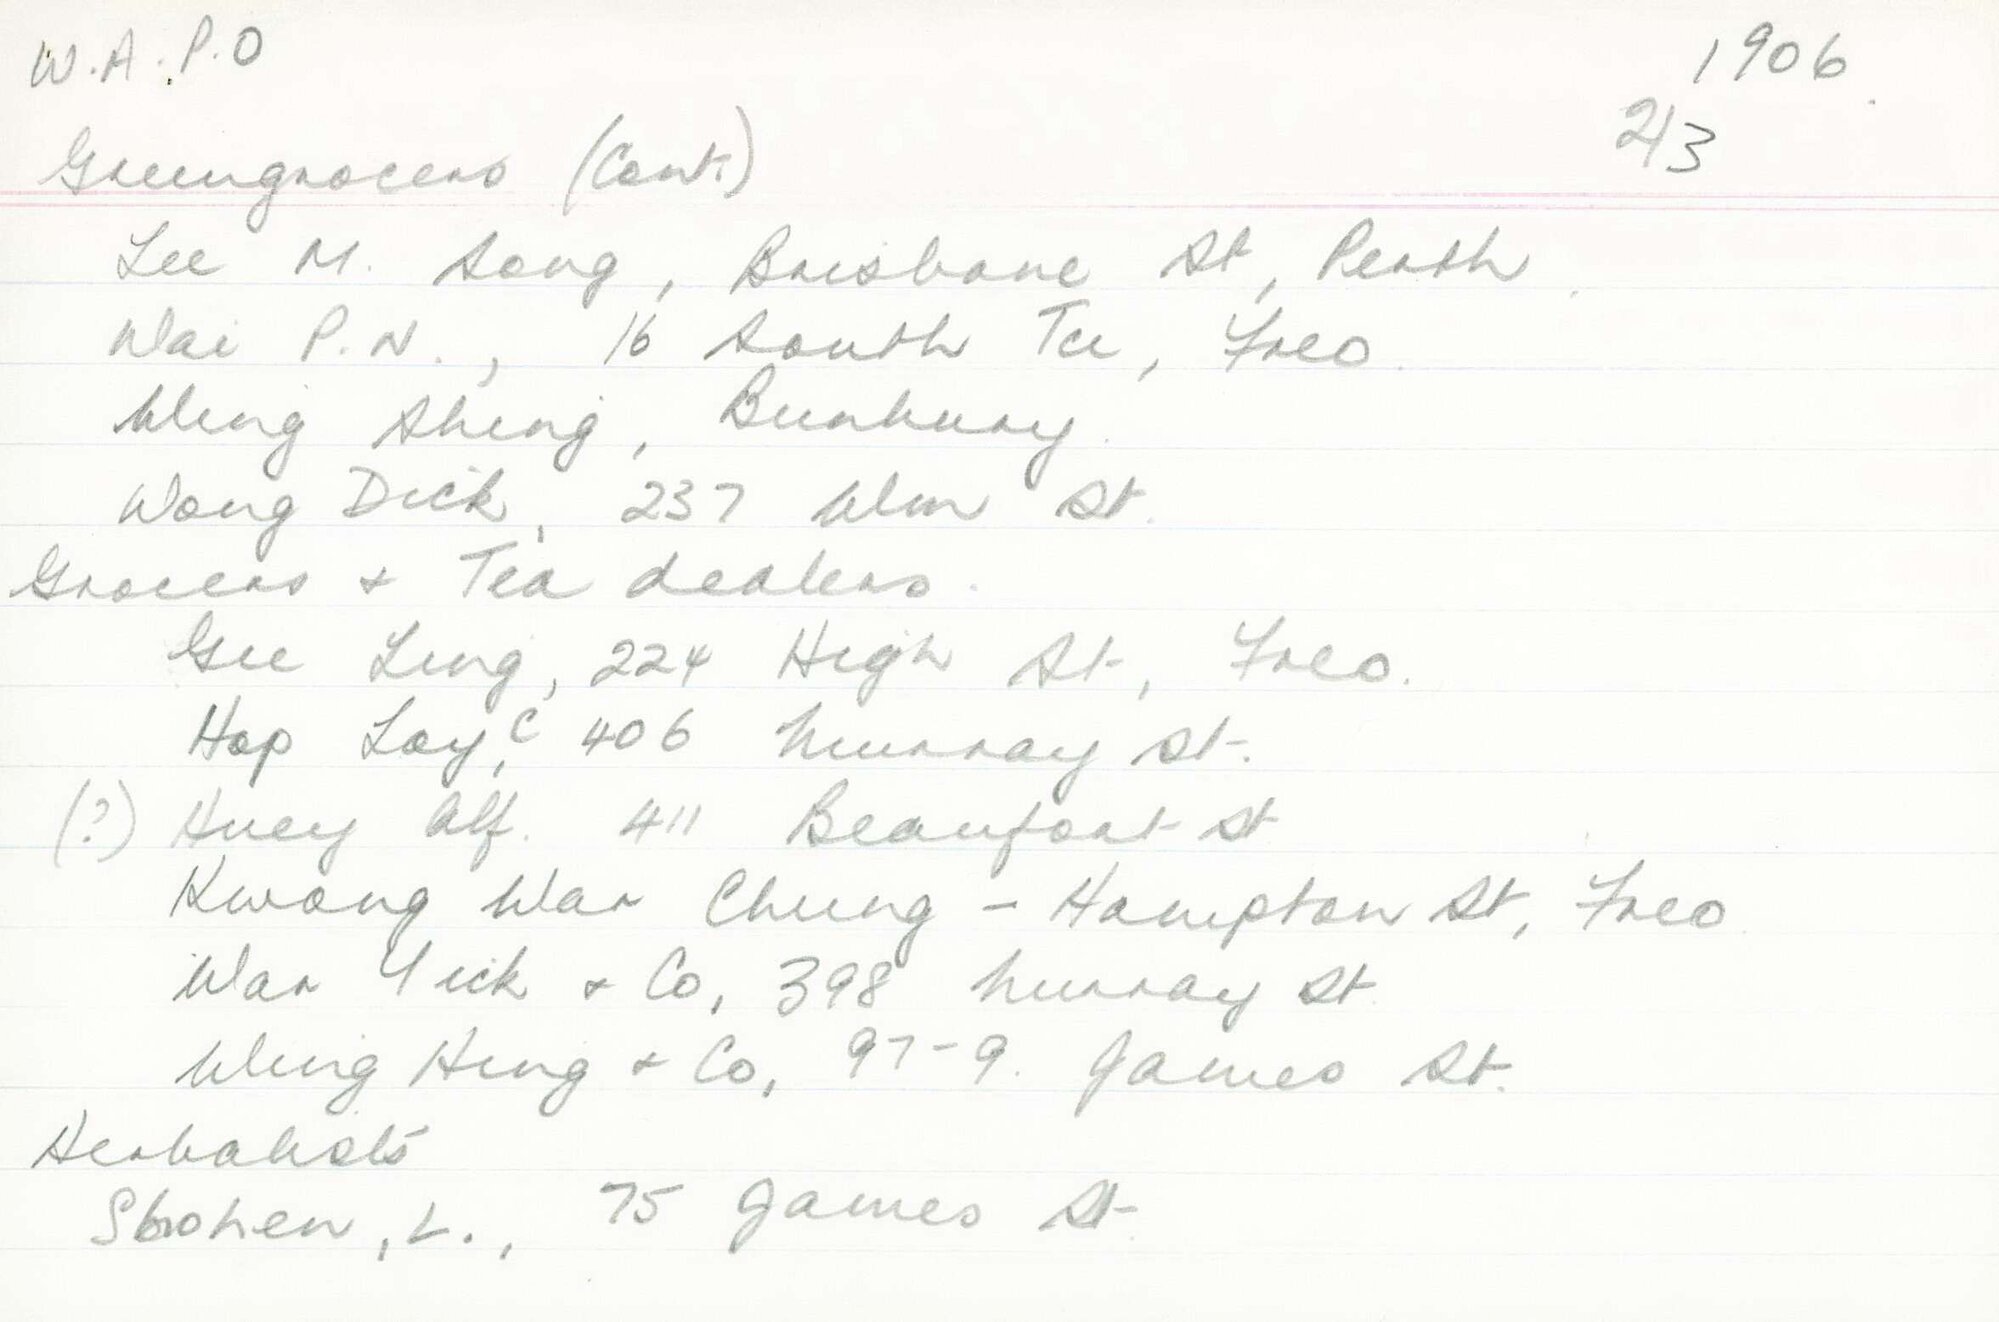 W.A.P.O 1906.
2/3
Greengrocers (Cont.)
Lee M. Song, Brisbane St, Perth.
Wai P.N., 16 South Tce, Freo.
Wing Shing, Bunbury.
Wong Dick, 237 Wm St.
Grocers & Tea dealers.
Gee Ling, 224 High St, Freo.
Hop Loy, C 406 Murray St.
(?) Huey Alf. 411 Beaufort St
Kwong War Chung - Hampton St, Freo
War Yick & Co, 398 Murray St
Wing Hing & Co, 97-9. James St.
Herbalists
L., 75 James St